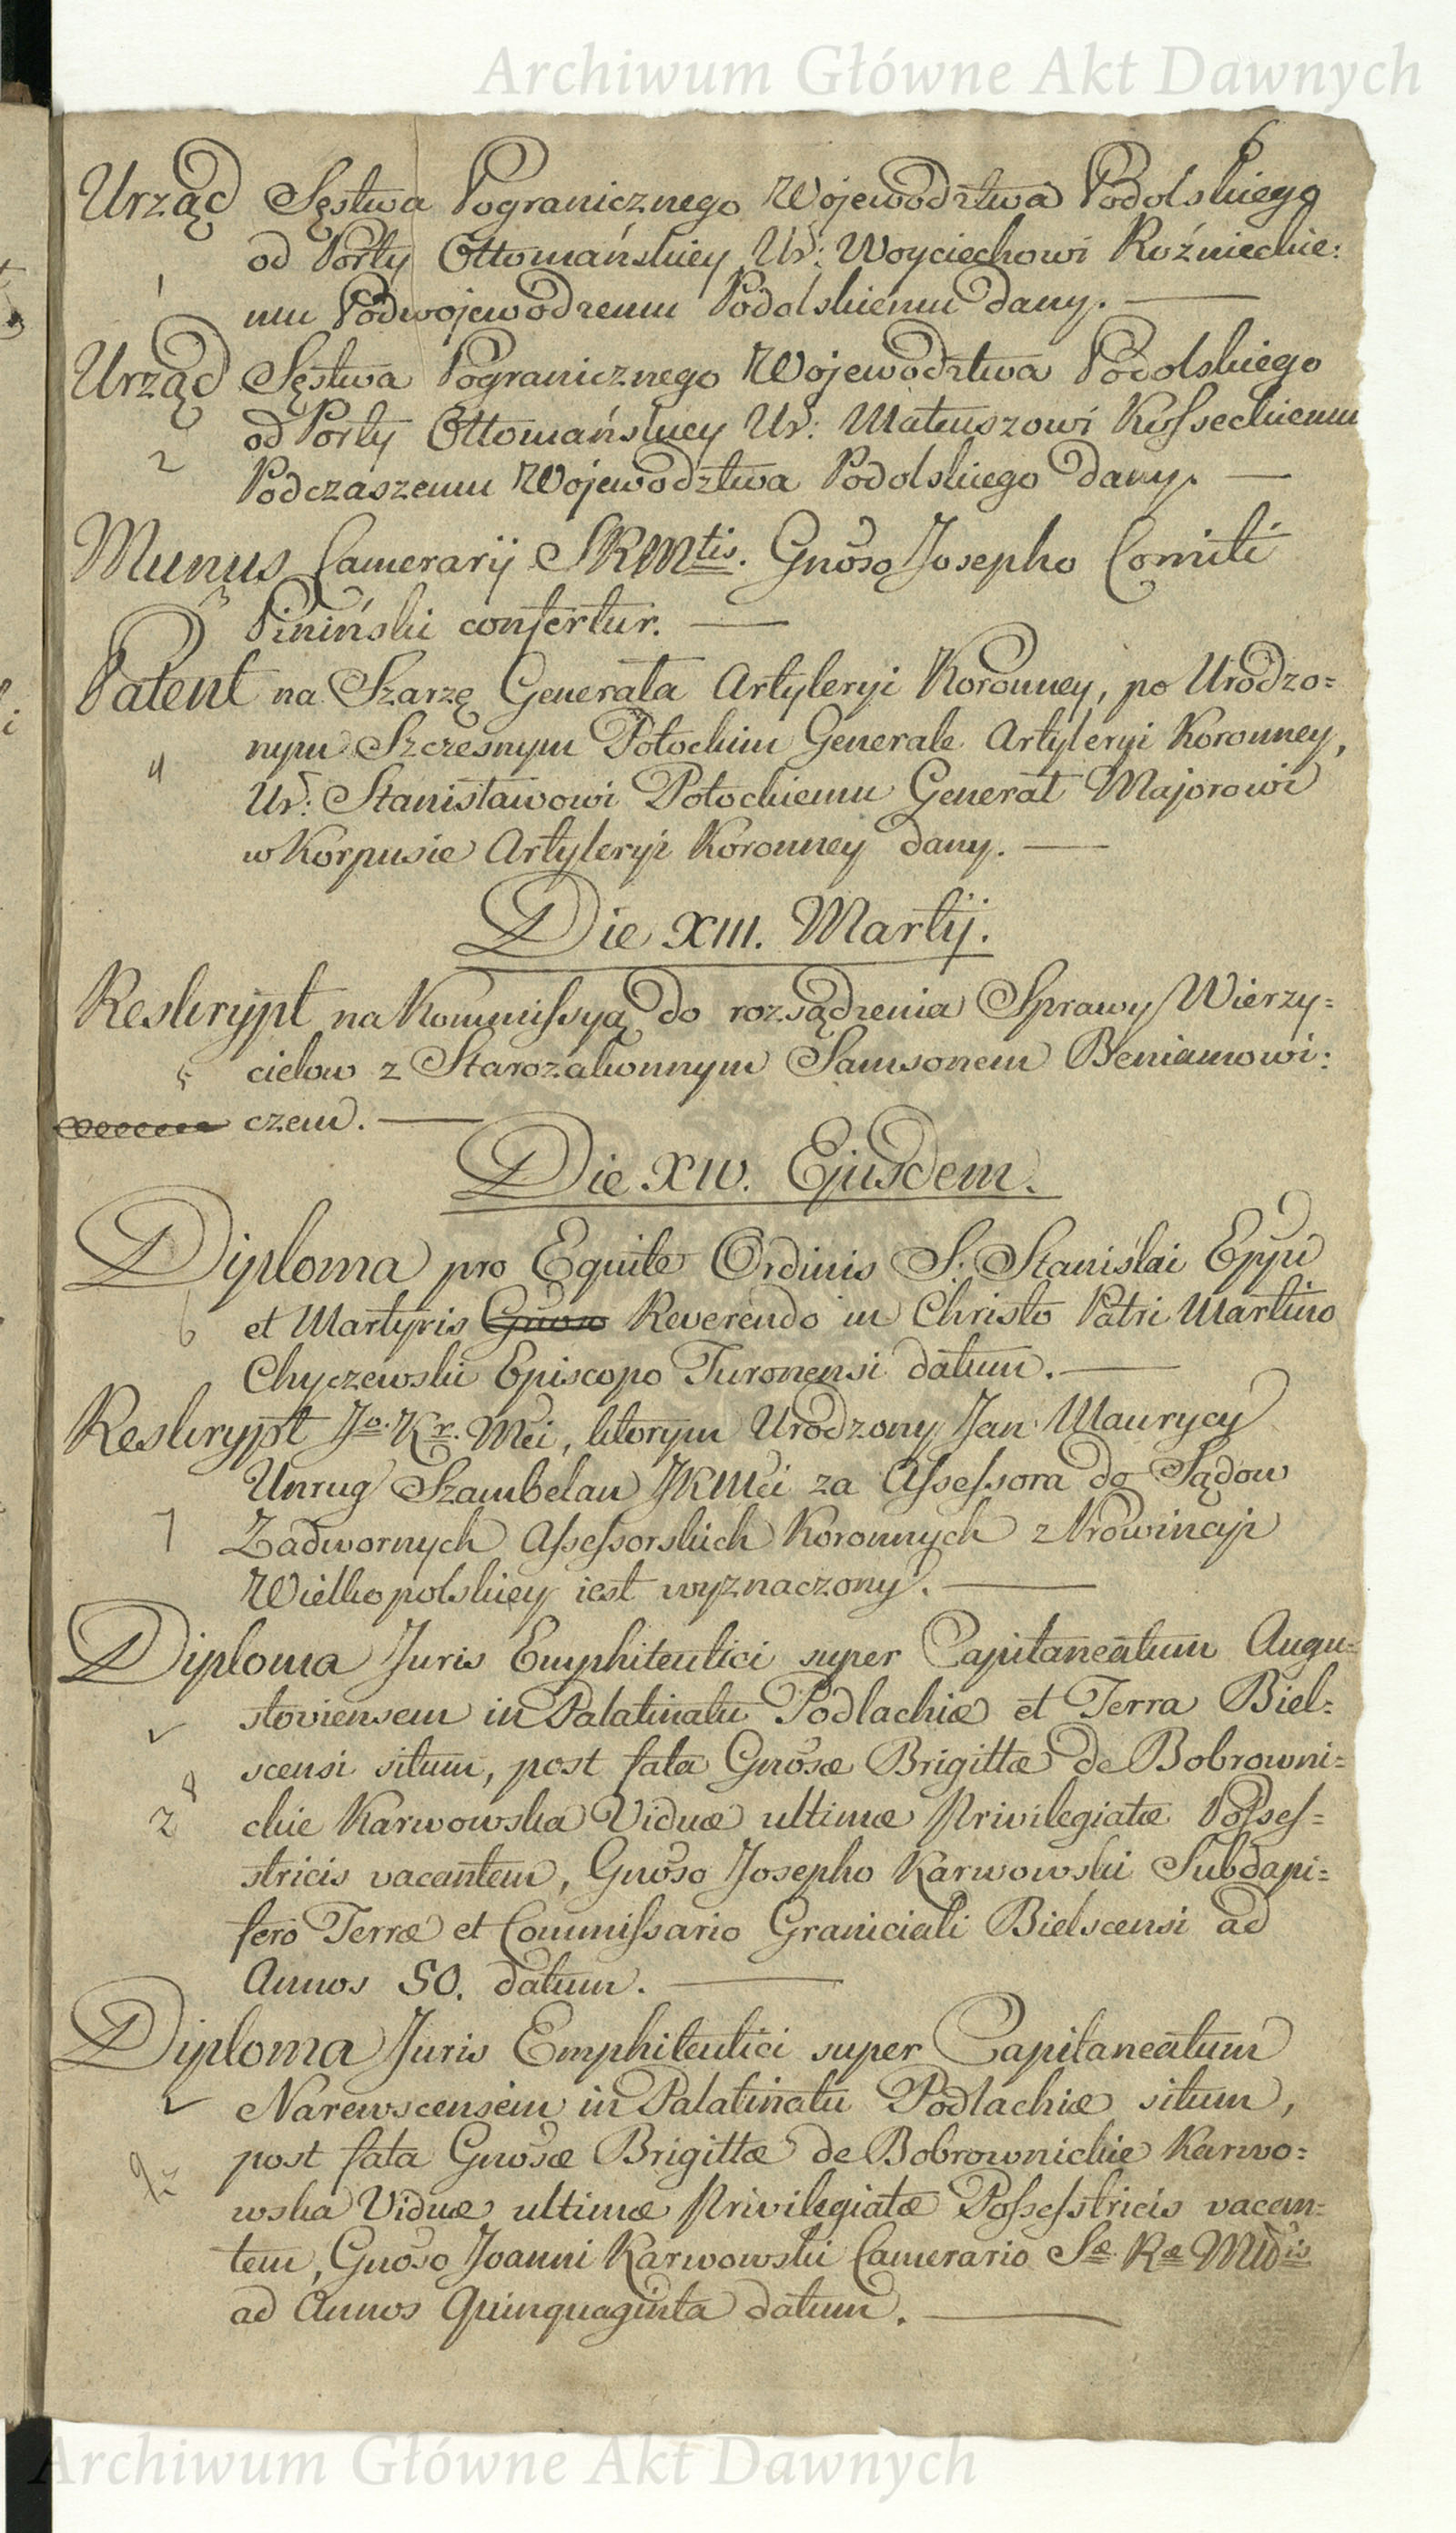 Archiwum Główne Akt Dawnych
6
Urząd Sęstwa Pogranicznego Wojewodztwa Podolskiego
od Porty Ottomańskiey Ur: Woyciechowi Roźnieckie:
1
mu Podwojewodzemu Podolskiemu dany. —
Urząd Sęstwa Pogranicznego Wojewodztwa Podolskiego
od Porty Ottomańskiey Ur: Mateuszowi Kosseckiemu
2
Podczaszemu Wojewodztwa Podolskiego dany. —
Munus Camerarij SRMtis. Gnoso Josepho Comiti
3
Piniński confertur. —
Patent na Szarzę Generała Artyleryi Koronney, po Urodzo=
nym Szczesnym Potockim Generale Artyleryi Koronney,
4
Ur: Stanisławowi Potockiemu Generał Majorowi
w Korpusie Artyleryi Koronney dany. —
Die XIII. Martij.
Reskrypt na Kommissyą do rozsądzenia Sprawy Wierzy=
5 cielow z Starozakonnym Samsonem Beniamowi:
czem. —
Die XIV. Ejusdem.
Diploma pro Equite Ordinis S. Stanislai Eppi
6 et Martyris Gnoso Reverendo in Christo Patri Martino
Chyczewski Episcopo Turonensi datum. —
Reskrypt Jo. Kr. Mci, ktorym Urodzony Jan Maurycy
Unrug Szambelan JKMci za Assessora do Sądow
7 Zadwornych Assessorskich Koronnych z Prowincyi
Wielkopolskiey iest wyznaczony. —
Diploma Juris Emphiteutici super Capitaneatum Augu=
stoviensem in Palatinatu Podlachiæ et Terra Biel=
scensi situm, post fata Gnosæ Brigittæ de Bobrowni=
8
2 ckie Karwowska Viduæ ultimæ Privilegiatæ Posses=
stricis vacantem, Gnoso Josepho Karwowski Subdapi=
fero Terræ et Commissario Graniciali Bielscensi ad
Annos 50. datum. —
Diploma Juris Emphiteutici super Capitaneatum
Narewscensem in Palatinatu Podlachiæ situm,
9 post fata Gnosæ Brigittæ de Bobrownickie Karwo=
2
wska Viduæ ultimæ Privilegiatæ Possesstricis vacan=
tem, Gnoso Joanni Karwowski Camerario Sæ Ræ Mtis
ad Annos Quinquaginta datum. —
Archiwum Główne Akt Dawnych